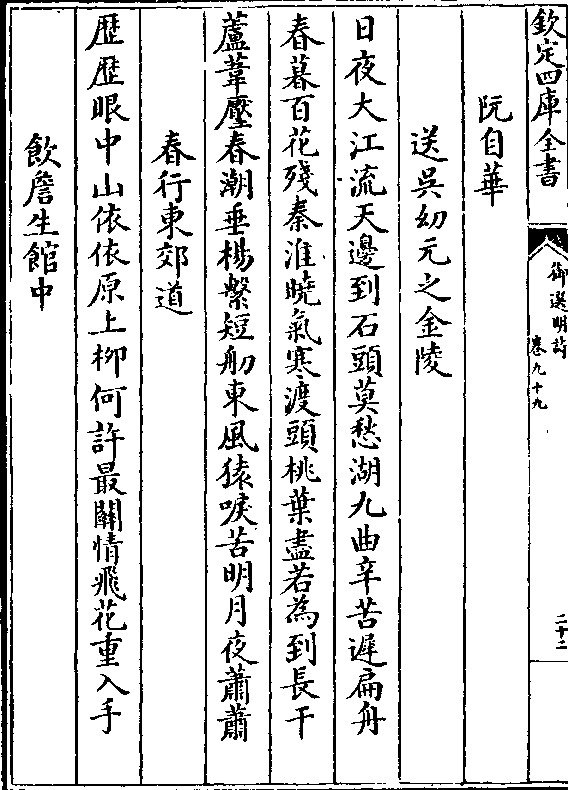 欽定四庫全書
御選明詩
卷九十九
二十二
阮自華
送吳幼元之金陵
日夜大江流天邊到石頭莫愁湖九曲辛苦遲扁舟
春暮百花殘秦淮曉氣寒渡頭桃葉盡若為到長干
蘆葦壓春潮垂楊繫短舠東風猿唳苦明月夜蕭蕭
春行東郊道
歴歴眼中山依依原上柳何許最關情飛花重入手
飲詹生館中